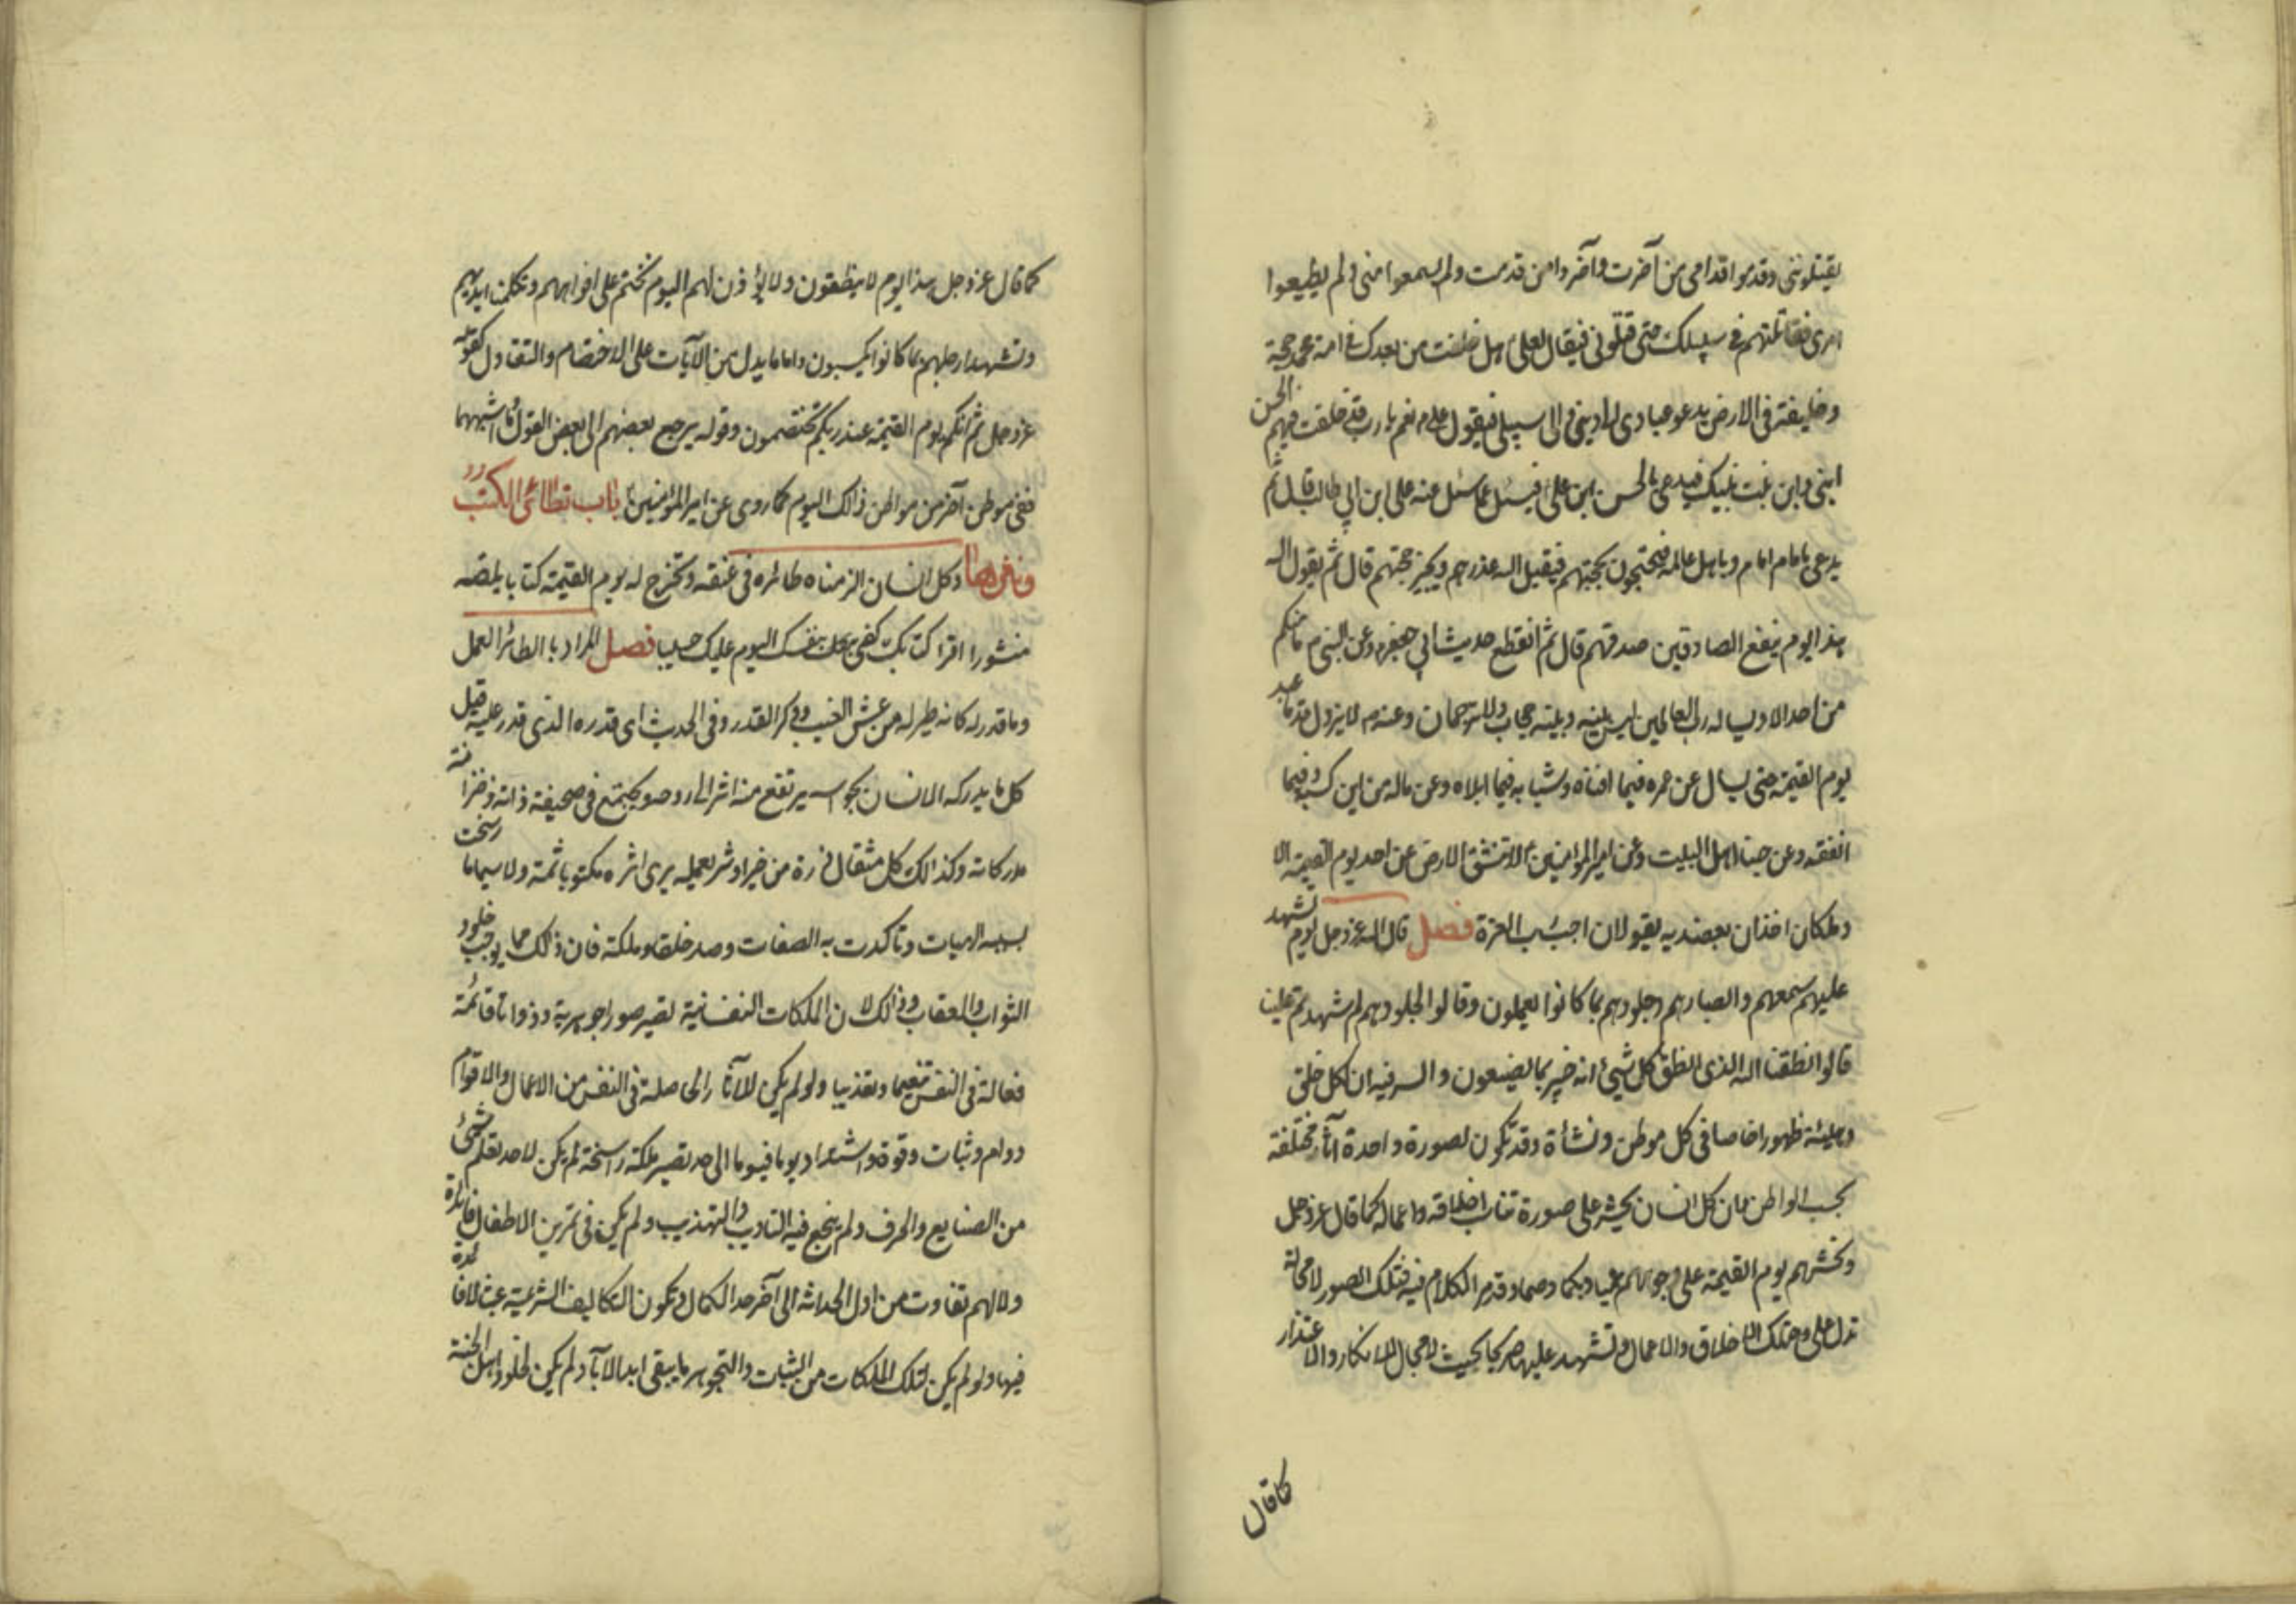 يقتلونني وقدموا قدامي من اخرت واخروا من قدمت ولم يسمعوا مني ولم يطيعوا
امري فقاتلتهم في سبيلك حتى قتلوني فيقال لعلي هل خلفت من بعدك في امة محمد حجة
وخليفة في الارض يدعو عبادي الى ديني والى سبيلي فيقول علي نعم يا رب قد خلفت فيهم الحسن
ابني وابن بنت نبيك فيدعى بالحسن ابن علي فيسئل عما سئل عنه علي ابن ابي طالب قال ثم
يدعى بامام امام وباهل عالمه فيحتجون بحجتهم فيقبل الله عذرهم ويجيز حجتهم قال ثم يقول الله
هذا يوم ينفع الصادقين صدقهم قال ثم انقطع حديث ابي جعفر وعن النبي م ما منكم
من احد الا ويساله رب العالمين ليس بينه وبينه حجاب ولا ترجمان وعنه م لا يزول قدما عبد
يوم القيمة حتى يسال عن عمره فيما افناه وشبابه فيما ابلاه وعن ماله من اين كسبه وفيما
انفقه وعن حبنا اهل البيت وعن امير المؤمنين م لا تنشق الارض عن احد يوم القيمة الا
وملكان اخذان بعضديه يقولان اجب رب العزة فصل قال الله عز وجل يوم تشهد
عليهم سمعهم وابصارهم وجلودهم بما كانوا يعملون وقالوا لجلودهم لم شهدتم علينا
قالوا انطقنا الله الذي انطق كل شيئ انه خبير بما يصنعون والسر فيه ان لكل خلق
وهيئة ظهورا خاصا في كل موطن ونشأة وقد تكون لصورة واحدة آثار مختلفة
بحسب المواطن فان كل انسان يحشر على صورة تناسب اخلاقه واعماله كما قال عز وجل
ونحشرهم يوم القيمة على وجوههم عميا وبكما وصما وقد مر الكلام فيه فتلك الصور لا محالة
تدل على تلك الاخلاق والاعمال وتشهد عليها صريحا بحيث لا مجال للانكار والاعتذار
كما قال
كما قال عز وجل هذا يوم لا ينطقون ولا يؤذن لهم اليوم نختم على افواههم وتكلمنا ايديهم
وتشهد ارجلهم بما كانوا يكسبون واما ما يدل من الآيات على الاختصام والتقاول كقوله
عز وجل ثم انكم يوم القيمة عند ربكم تختصمون وقوله يرجع بعضهم الى بعض القول وما اشبههما
ففي موطن آخر من مواطن ذالك اليوم كما روى عن امير المؤمنين ع باب تطائر الكتب
ونشرها وكل انسان الزمناه طائره في عنقه ونخرج له يوم القيمة كتابا يلقيه
منشورا اقرا كتابك كفى بنفسك اليوم عليك حسيبا فصل المراد بالطائر العمل
وما قدر له كانه طير له من عش الغيب ووكر القدر وفي الحديث اي قدره الذي قدر عليه قيل
كل ما يدركه الانسان بحواسه يرتفع منه اثر الى روحه ويجتمع في صحيفة ذاته وخزانة
مدركاته وكذالك كل مثقال ذرة من خير او شر يعمله يرى اثره مكتوبا ثمة ولا سيما ما رسخت
بسببه الهيات وتاكدت به الصفات وصار خلقا وملكة فان ذلك مما يوجب خلود
الثواب والعقاب وذالك لان الملكات النفسانية تصير صورا جوهرية وذواتا قائمة
فعالة في النفس تنعيما وتعذيبا ولو لم يكن للآثار الحاصلة في النفس من الاعمال والاقوال
دوام وثبات وقوة واشتداد يوما فيوما الى حد تصير ملكة راسخة لم يكن لاحد تعلم شيئ
من الصنايع والحرف ولم ينجع فيه التاديب والتهذيب ولم يكن في تمرين الاطفال فائدة
ولا لهم تفاوت من اول الحداثه الى آخر حد الكمال وتكون التكاليف الشرعية عبثا لا فائدة
فيها ولو لم يكن لتلك الملكات من الثبات والتجوهر ما يبقى ابد الآباد لم يكن لخلود اهل الجنة